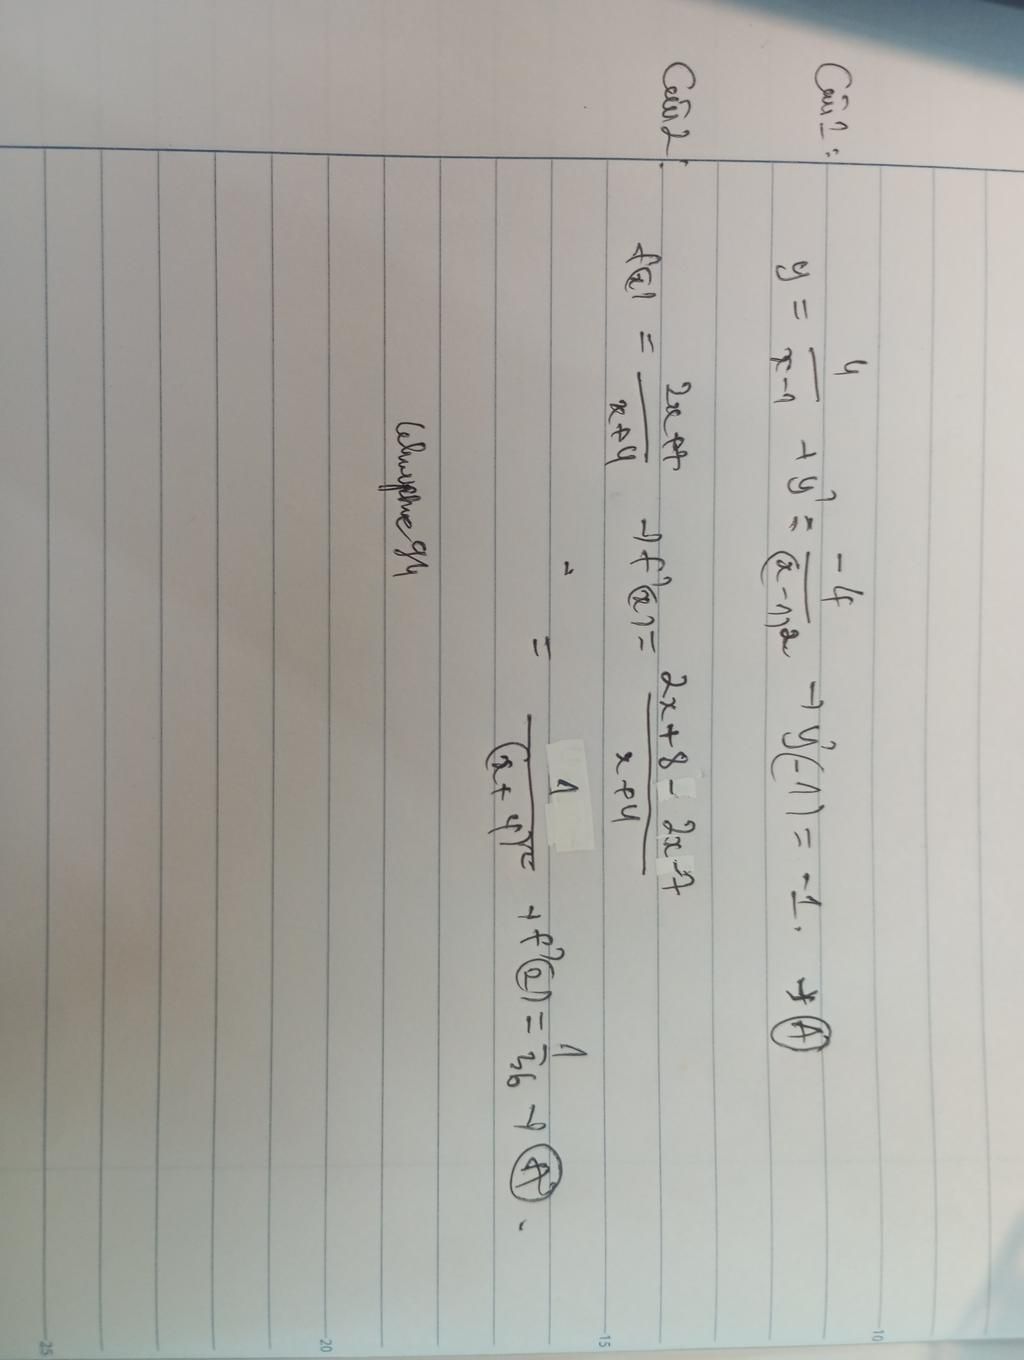 Câu 1:
y = 4/(x-1) → y' = -4/(x-1)² → y'(-1) = -1. → A
Câu 2:
f(x) = (2x+7)/(x+4) → f'(x) = (2x+8-2x-7)/(x+4)
= 1/(x+4)² → f'(2) = 1/36 → A.
10
15
20
25